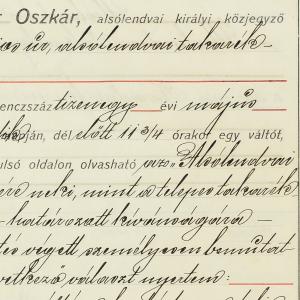 Oszkár, alsólendvai királyi közjegyző
úr, alsólendvai takarék-
enczszáz tizenegy évi május
napján, dél előtt 11 3/4 órakor egy váltót,
ulsó oldalon olvasható az „Alsólendvai
neki, mint a telepes takarék
- határozott kívánságára -
tés végett személyesen bemutat
vetkező választ nyertem: